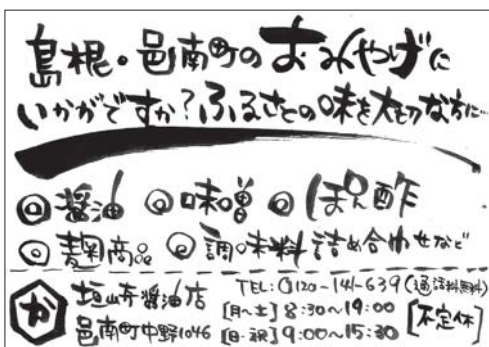 島根・邑南町のおみやげに
いかがですか?ふるさとの味を大切な方に…
◎醤油 ◎味噌 ◎ぽん酢
◎麹商品 ◎調味料詰め合わせなど
か
垣崎醤油店
邑南町中野1046
TEL:0120-141-639(通話料無料)
[月~土] 8:30~19:00
[日・祝] 9:00~15:30
[不定休]